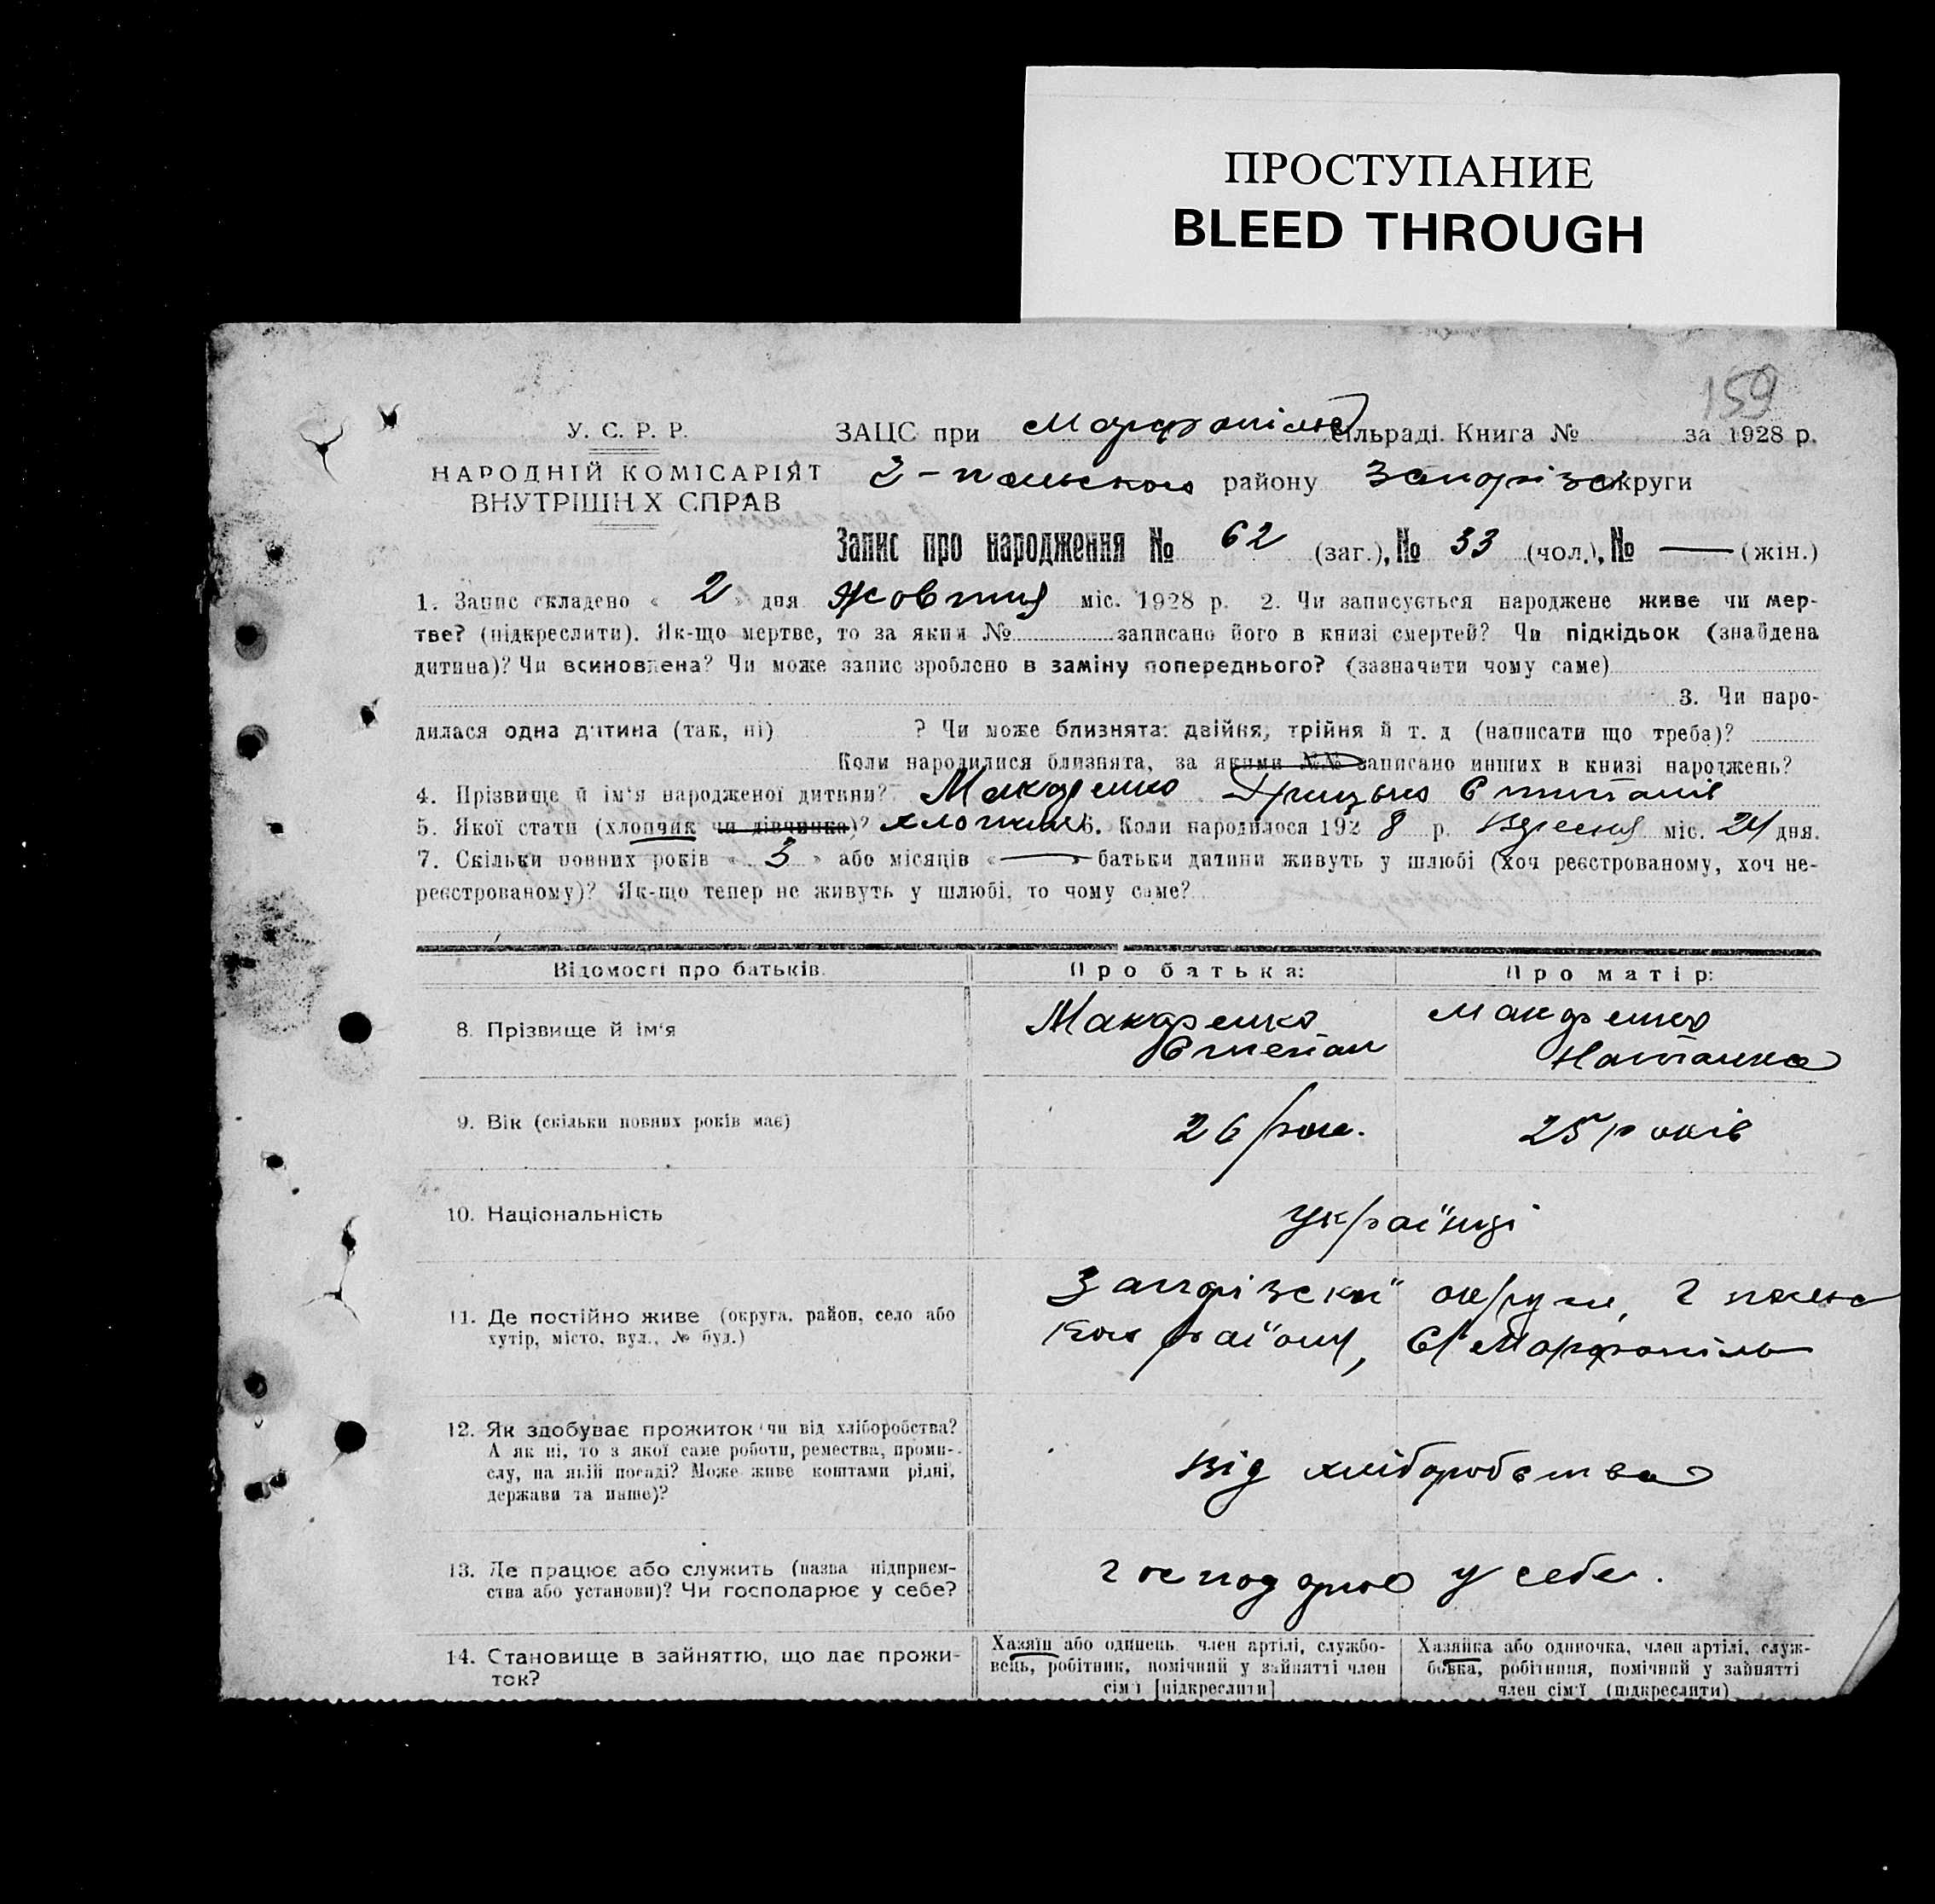 ПРОСТУПАНИЕ
BLEED THROUGH
159
У. С. Р. Р.
НАРОДНІЙ КОМІСАРІЯТ
ВНУТРІШН Х СПРАВ
ЗАЦС при Марфопільс сільраді. Книга № за 1928 р.
Г-польського району Запоріз округи
Запис про народження № 62 (заг.), № 33 (чол.), № — (жін.)
1. Запис складено « 2 » дня Жовтня міс. 1928 р. 2. Чи записується народжене живе чи мер-
тве? (підкреслити). Як-що мертве, то за яким № записано його в книзі смертей? Чи підкідьок (знайдена
дитина)? Чи всиновлена? Чи може запис зроблено в заміну попереднього? (зазначити чому саме)
3. Чи наро-
дилася одна дитина (так, ні) ? Чи може близнята: двійня, трійня й т. д (написати що треба)?
Коли народилися близнята, за якими №№ записано инших в книзі народжень?
4. Прізвище й ім'я народженої дитини? Макаренко Грицько
5. Якої стати (хлопчик чи дівчинка)? хлопчик 6. Коли народилося 192 8 р. Вересня міс. 24 дня.
7. Скільки повних років « 3 » або місяців « — » батьки дитини живуть у шлюбі (хоч реєстрованому, хоч не-
реєстрованому)? Як-що тепер не живуть у шлюбі, то чому саме?
Відомості про батьків. Про батька: Про матір:
8. Прізвище й ім'я Макаренко Степан Макаренко Наталка
9. Вік (скільки повних років має) 26 рок. 25 років
10. Національність українці
11. Де постійно живе (округа, район, село або
хутір, місто, вул., № буд.)
Запорізскої округи, Г польс
кого району, С/ Марфопіль
12. Як здобуває прожиток чи від хліборобства?
А як ні, то з якої саме роботи, ремества, проми-
слу, на якій посаді? Може живе коштами рідні,
держави та инше)?
від хліборобства
13. Де працює або служить (назва підприєм-
ства або установи)? Чи господарює у себе?
господарює у себе.
14. Становище в зайняттю, що дає прожи-
ток?
Хазяїн або одинець член артілі, службо-
вець, робітник, помічний у зайнятті член
сім'ї [підкреслити]
Хазяйка або одиночка, член артілі, служ-
бовка, робітниця, помічний у зайнятті
член сім'ї (підкреслити)